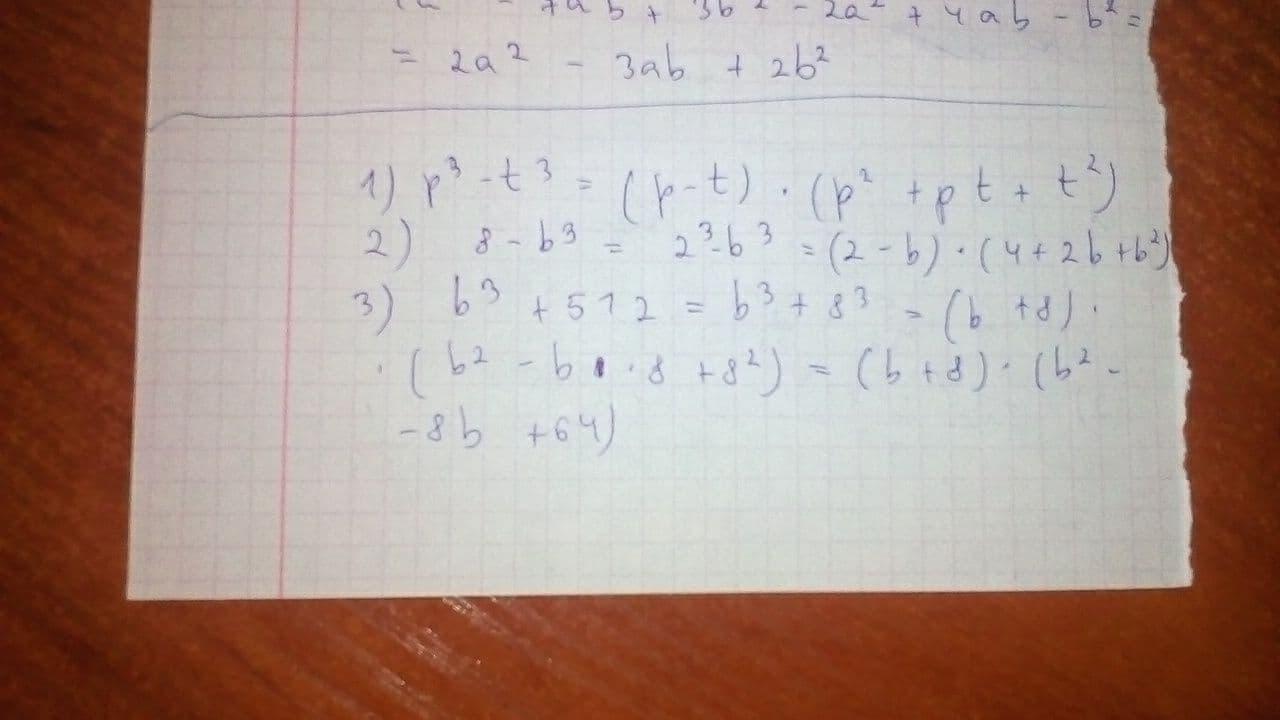 - 7ab + 3b² - 2a² + 4ab - b² =
= 2a² - 3ab + 2b²
1) p³ - t³ = (p - t) · (p² + pt + t²)
2) 8 - b³ = 2³ - b³ = (2 - b) · (4 + 2b + b²)
3) b³ + 512 = b³ + 8³ = (b + 8) ·
· (b² - b · · 8 + 8²) = (b + 8) · (b² -
- 8b + 64)